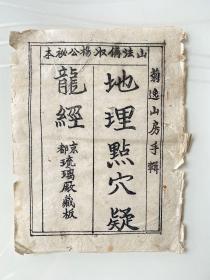 山法備收楊公祕本
菊逸山房手輯
地理點穴疑
龍經
京都琉璃厰藏板